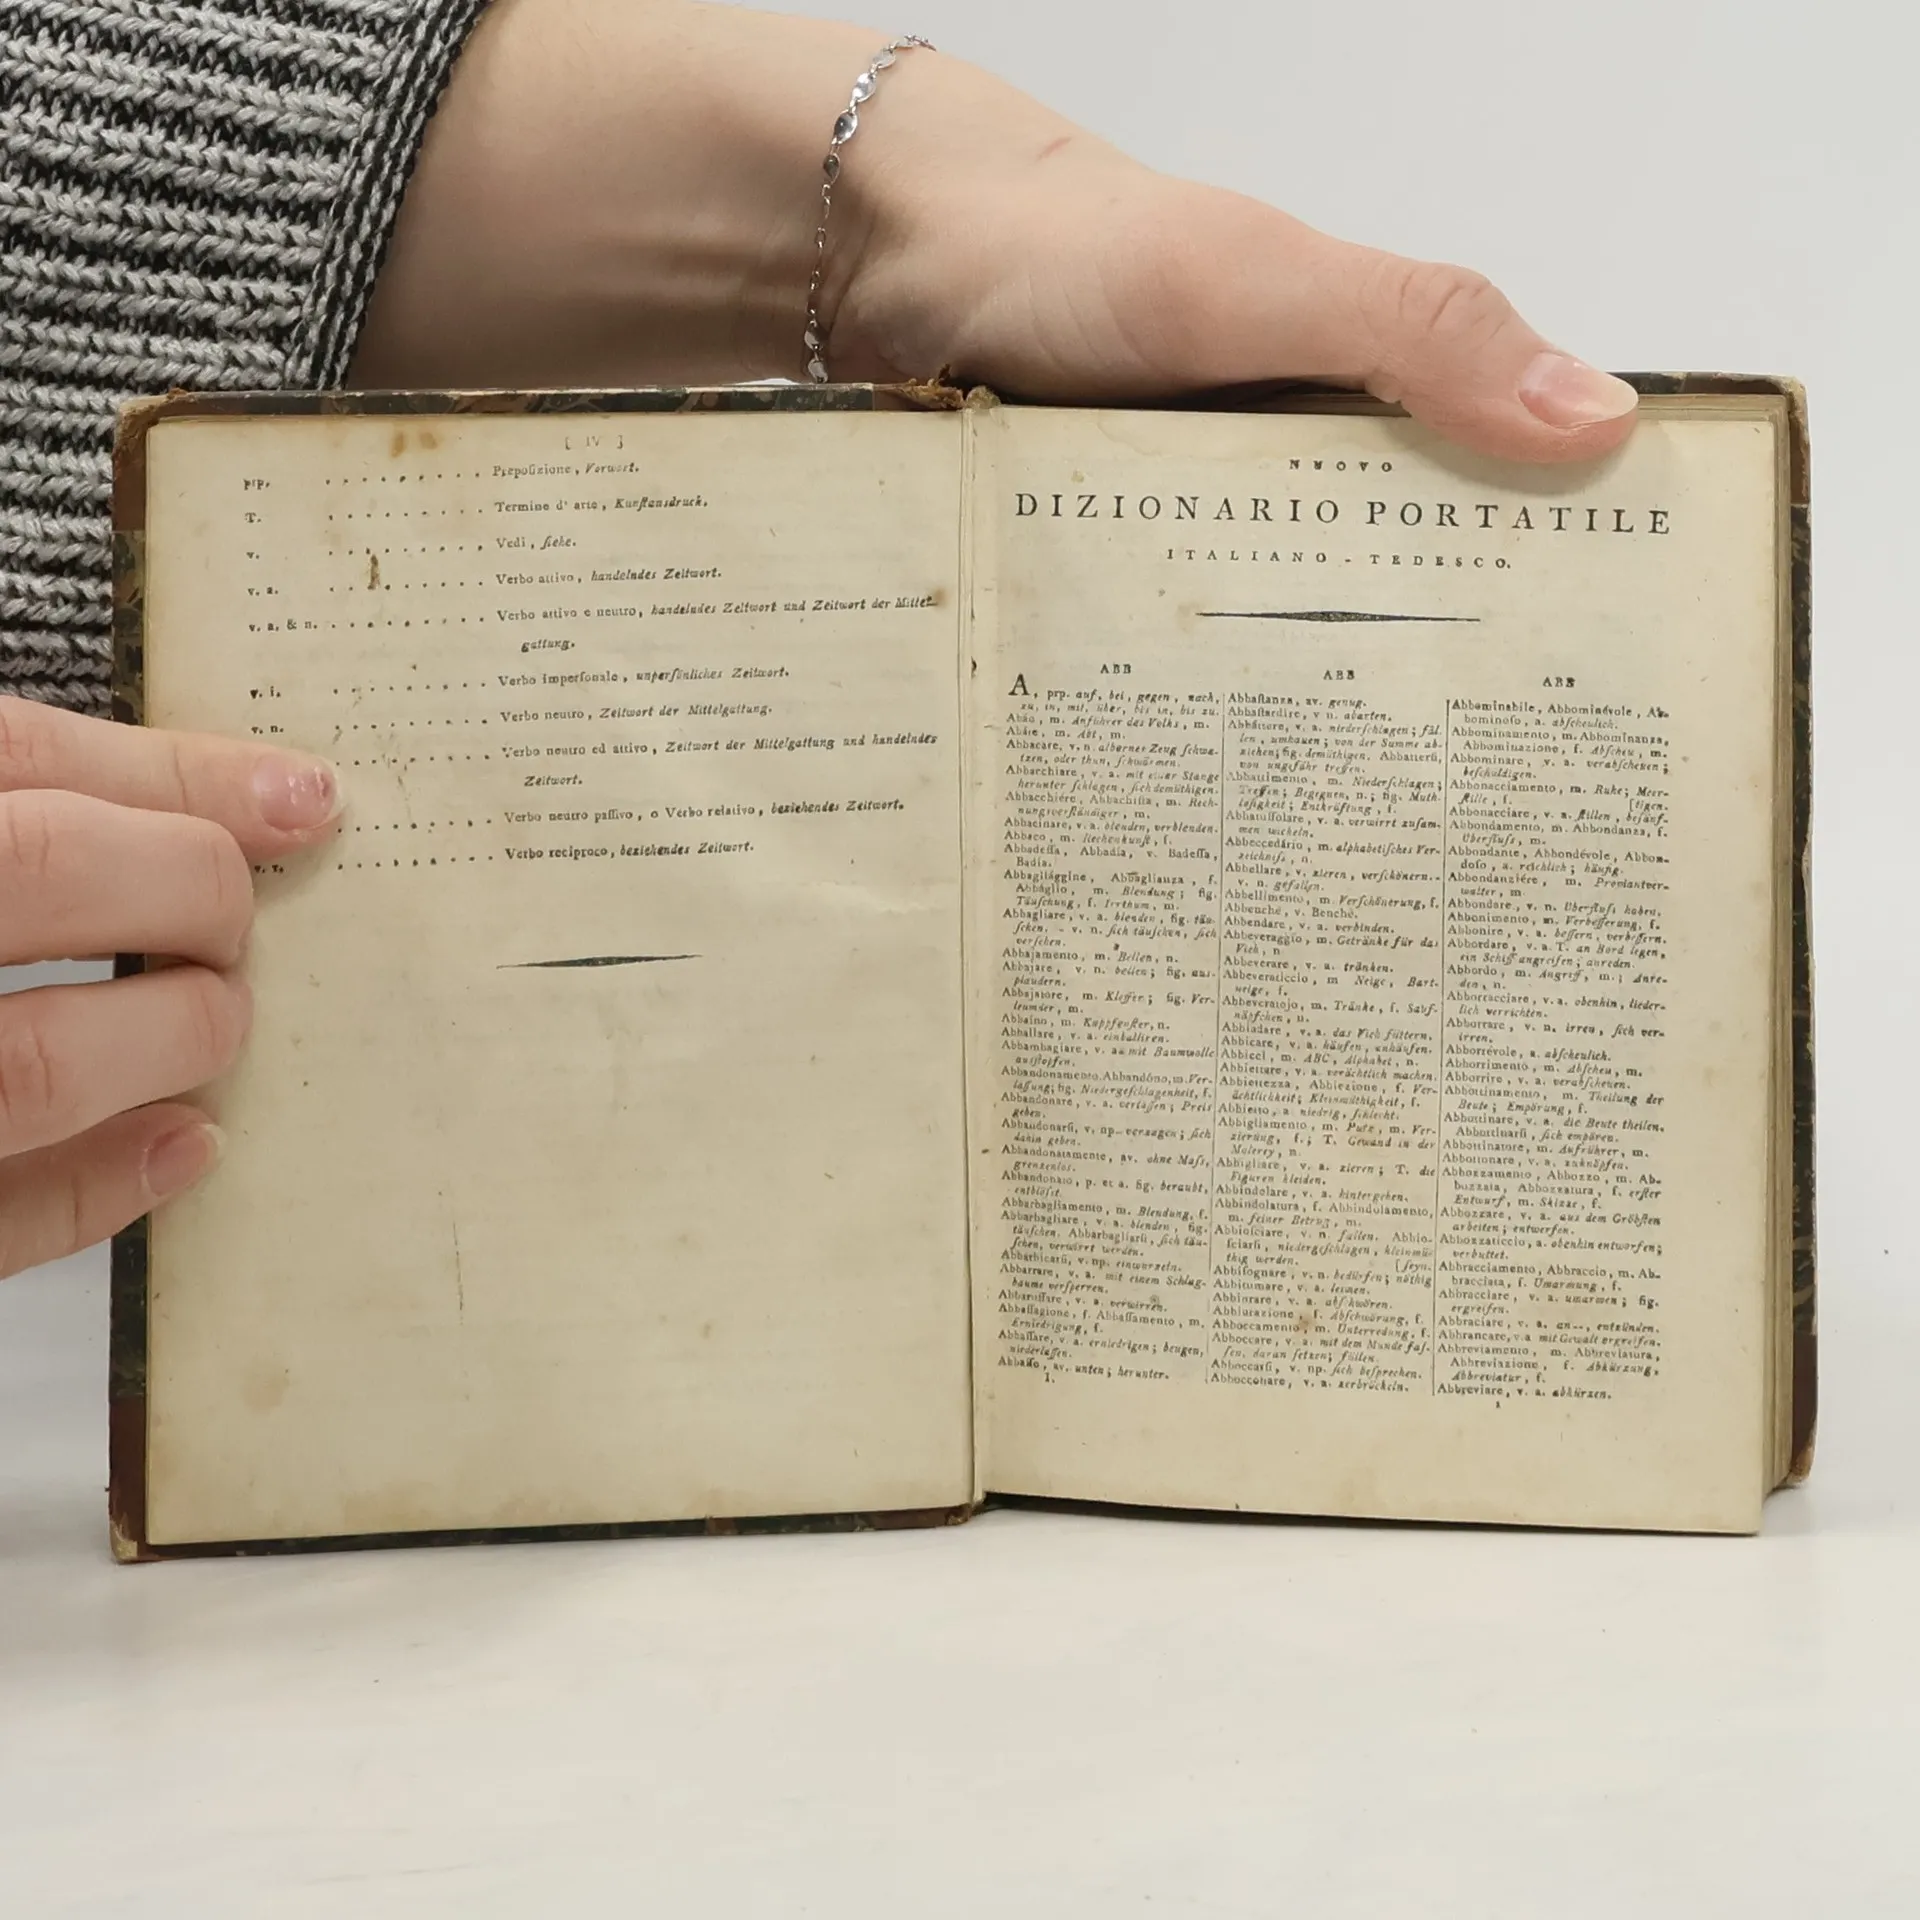 [ IV ]
prp. . . . . . . . . . Preposizione, Vorwort.
T. . . . . . . . . . Termine d' arte, Kunſtausdruck.
v. . . . . . . . . . Vedi, ſiehe.
v. a. . . . . . . . . . Verbo attivo, handelndes Zeitwort.
v. a. & n. . . . . . . . . . Verbo attivo e neutro, handelndes Zeitwort und Zeitwort der Mittel-
gattung.
v. i. . . . . . . . . . Verbo imperſonale, unperſönliches Zeitwort.
v. n. . . . . . . . . . Verbo neutro, Zeitwort der Mittelgattung.
. . . . . . . . . Verbo neutro ed attivo, Zeitwort der Mittelgattung und handelndes
Zeitwort.
. . . . . . . . . Verbo neutro paſſivo, o Verbo relativo, beziehendes Zeitwort.
v. r. . . . . . . . . . Verbo reciproco, beziehendes Zeitwort.
NUOVO
DIZIONARIO PORTATILE
ITALIANO - TEDESCO.
ABB
A, prp. auf, bei, gegen, nach,
zu, in, mit, über, bis in, bis zu.
Abáo, m. Anführer des Volks, m.
Abáte, m. Abt, m.
Abbacare, v. n. albernes Zeug ſchwa-
tzen, oder thun, ſchwärmen.
Abbacchiare, v. a. mit einer Stange
herunter ſchlagen, ſich demüthigen.
Abbacchiére, Abbachiſta, m. Rech-
nungsverſtändiger, m.
Abbacinare, v. a. blenden, verblenden.
Abbaco, m. Rechenkunſt, f.
Abbadeſſa, Abbadía, v. Badeſſa,
Badía.
Abbagliággine, Abbaglianza, f.
Abbáglio, m. Blendung; fig.
Täuſchung, f. Irrthum, m.
Abbagliare, v. a. blenden, fig. täu-
ſchen. - v. n. ſich täuſchen, ſich
verſehen.
Abbajamento, m. Bellen, n.
Abbajare, v. n. bellen; fig. aus-
plaudern.
Abbajatore, m. Kläffer; fig. Ver-
leumder, m.
Abbaíno, m. Kappfenſter, n.
Abballare, v. a. einballiren.
Abbambagiare, v. a. mit Baumwolle
ausſtopfen.
Abbandonamento, Abbandóno, m. Ver-
laſſung; fig. Niedergeſchlagenheit, f.
Abbandonare, v. a. verlaſſen; Preis
geben.
Abbandonarſi, v. np. verzagen; ſich
dahin geben.
Abbandonatamente, av. ohne Maſs,
grenzenlos.
Abbandonato, p. et a. fig. beraubt,
entblöſst.
Abbarbagliamento, m. Blendung, f.
Abbarbagliare, v. a. blenden, fig.
täuſchen. Abbarbagliarſi, ſich täu-
ſchen, verwirrt werden.
Abbarbicarſi, v. np. einwurzeln.
Abbarrare, v. a. mit einem Schlag-
baume verſperren.
Abbaruffare, v. a. verwirren.
Abbaſſagione, f. Abbaſſamento, m.
Erniedrigung, f.
Abbaſſare, v. a. erniedrigen; beugen,
niederlaſſen.
Abbaſſo, av. unten; herunter.
I.
ABB
Abbaſtanza, av. genug.
Abbaſtardire, v. n. abarten.
Abbáttere, v. a. niederſchlagen; fäl-
len, umhauen; von der Summe ab-
ziehen; fig. demüthigen. Abbatterſi,
von ungefähr treffen.
Abbattimento, m. Niederſchlagen;
Treffen; Begegnen, n.; fig. Muth-
loſigkeit; Entkräftung, f.
Abbatuſſolare, v. a. verwirrt zuſam-
men wickeln.
Abbeccedário, m. alphabetiſches Ver-
zeichniſs, n.
Abbellare, v. zieren, verſchönern. -
v. n. gefallen.
Abbellimento, m. Verſchönerung, f.
Abbenchè, v. Benchè.
Abbendare, v. a. verbinden.
Abbeveraggio, m. Getränke für das
Vieh, n
Abbeverare, v. a. tränken.
Abbeveraticcio, m Neige, Bart-
neige, f.
Abbeveratojo, m. Tränke, f. Sauf-
näpfchen, n.
Abbiadare, v. a. das Vieh füttern.
Abbicare, v. a. häufen, anhäufen.
Abbiccì, m. ABC, Alphabet, n.
Abbiettare, v. a. verächtlich machen.
Abbiettezza, Abbiezione, f. Ver-
ächtlichkeit; Kleinmüthigkeit, f.
Abbietto, a. niedrig, ſchlecht.
Abbigliamento, m. Putz, m. Ver-
zierung, f.; T. Gewand in der
Malerey, n.
Abbigliare, v. a. zieren; T. die
Figuren kleiden.
Abbindolare, v. a. hintergehen.
Abbindolatura, f. Abbindolamento,
m. feiner Betrug, m.
Abbioſciare, v. n. fallen. Abbio-
ſciarſi, niedergeſchlagen, kleinmü-
thig werden. [ſeyn.
Abbiſognare, v. n. bedürfen; nöthig
Abbitumare, v. a. leimen.
Abbiurare, v. a. abſchwören.
Abbiurazione, f. Abſchwörung, f.
Abboccamento, m. Unterredung, f.
Abboccare, v. a. mit dem Munde faſ-
ſen, daran ſetzen; füllen.
Abboccarſi, v. np. ſich beſprechen.
Abbocconare, v. a. zerbröckeln.
ABB
Abbominabile, Abbominévole, Ab-
bominoſo, a. abſcheulich.
Abbominamento, m. Abbominanza,
Abbominazione, f. Abſcheu, m.
Abbominare, v. a. verabſcheuen;
beſchuldigen.
Abbonacciamento, m. Ruhe; Meer-
ſtille, f. [tigen.
Abbonacciare, v. a. ſtillen, beſänf-
Abbondamento, m. Abbondanza, f.
Überfluſs, m.
Abbondante, Abbondévole, Abbon-
doſo, a. reichlich; häufig.
Abbondanziére, m. Proviantver-
walter, m.
Abbondare, v. n. Überfluſs haben.
Abbonimento, m. Verbeſſerung, f.
Abbonire, v. a. beſſern, verbeſſern.
Abbordare, v. a. T. an Bord legen,
ein Schiff angreifen; anreden.
Abbordo, m. Angriff, m.; Anre-
den, n.
Abborracciare, v. a. obenhin, lieder-
lich verrichten.
Abborrare, v. n. irren, ſich ver-
irren.
Abborrévole, a. abſcheulich.
Abborrimento, m. Abſcheu, m.
Abborrire, v. a. verabſcheuen.
Abbottinamento, m. Theilung der
Beute; Empörung, f.
Abbottinare, v. a. die Beute theilen.
Abbottinarſi, ſich empören.
Abbottinatore, m. Aufrührer, m.
Abbottonare, v. a. zuknöpfen.
Abbozzamento, Abbozzo, m. Ab-
bozzata, Abbozzatura, f. erſter
Entwurf, m. Skizze, f.
Abbozzare, v. a. aus dem Gröbſten
arbeiten; entwerfen.
Abbozzaticcio, a. obenhin entworfen;
verbuttet.
Abbracciamento, Abbraccio, m. Ab-
bracciata, f. Umarmung, f.
Abbracciare, v. a. umarmen; fig.
ergreifen.
Abbraciare, v. a. an--, entzünden.
Abbrancare, v. a mit Gewalt ergreifen.
Abbreviamento, m. Abbreviatura,
Abbreviazione, f. Abkürzung,
Abbreviatur, f.
Abbreviare, v. a. abkürzen.